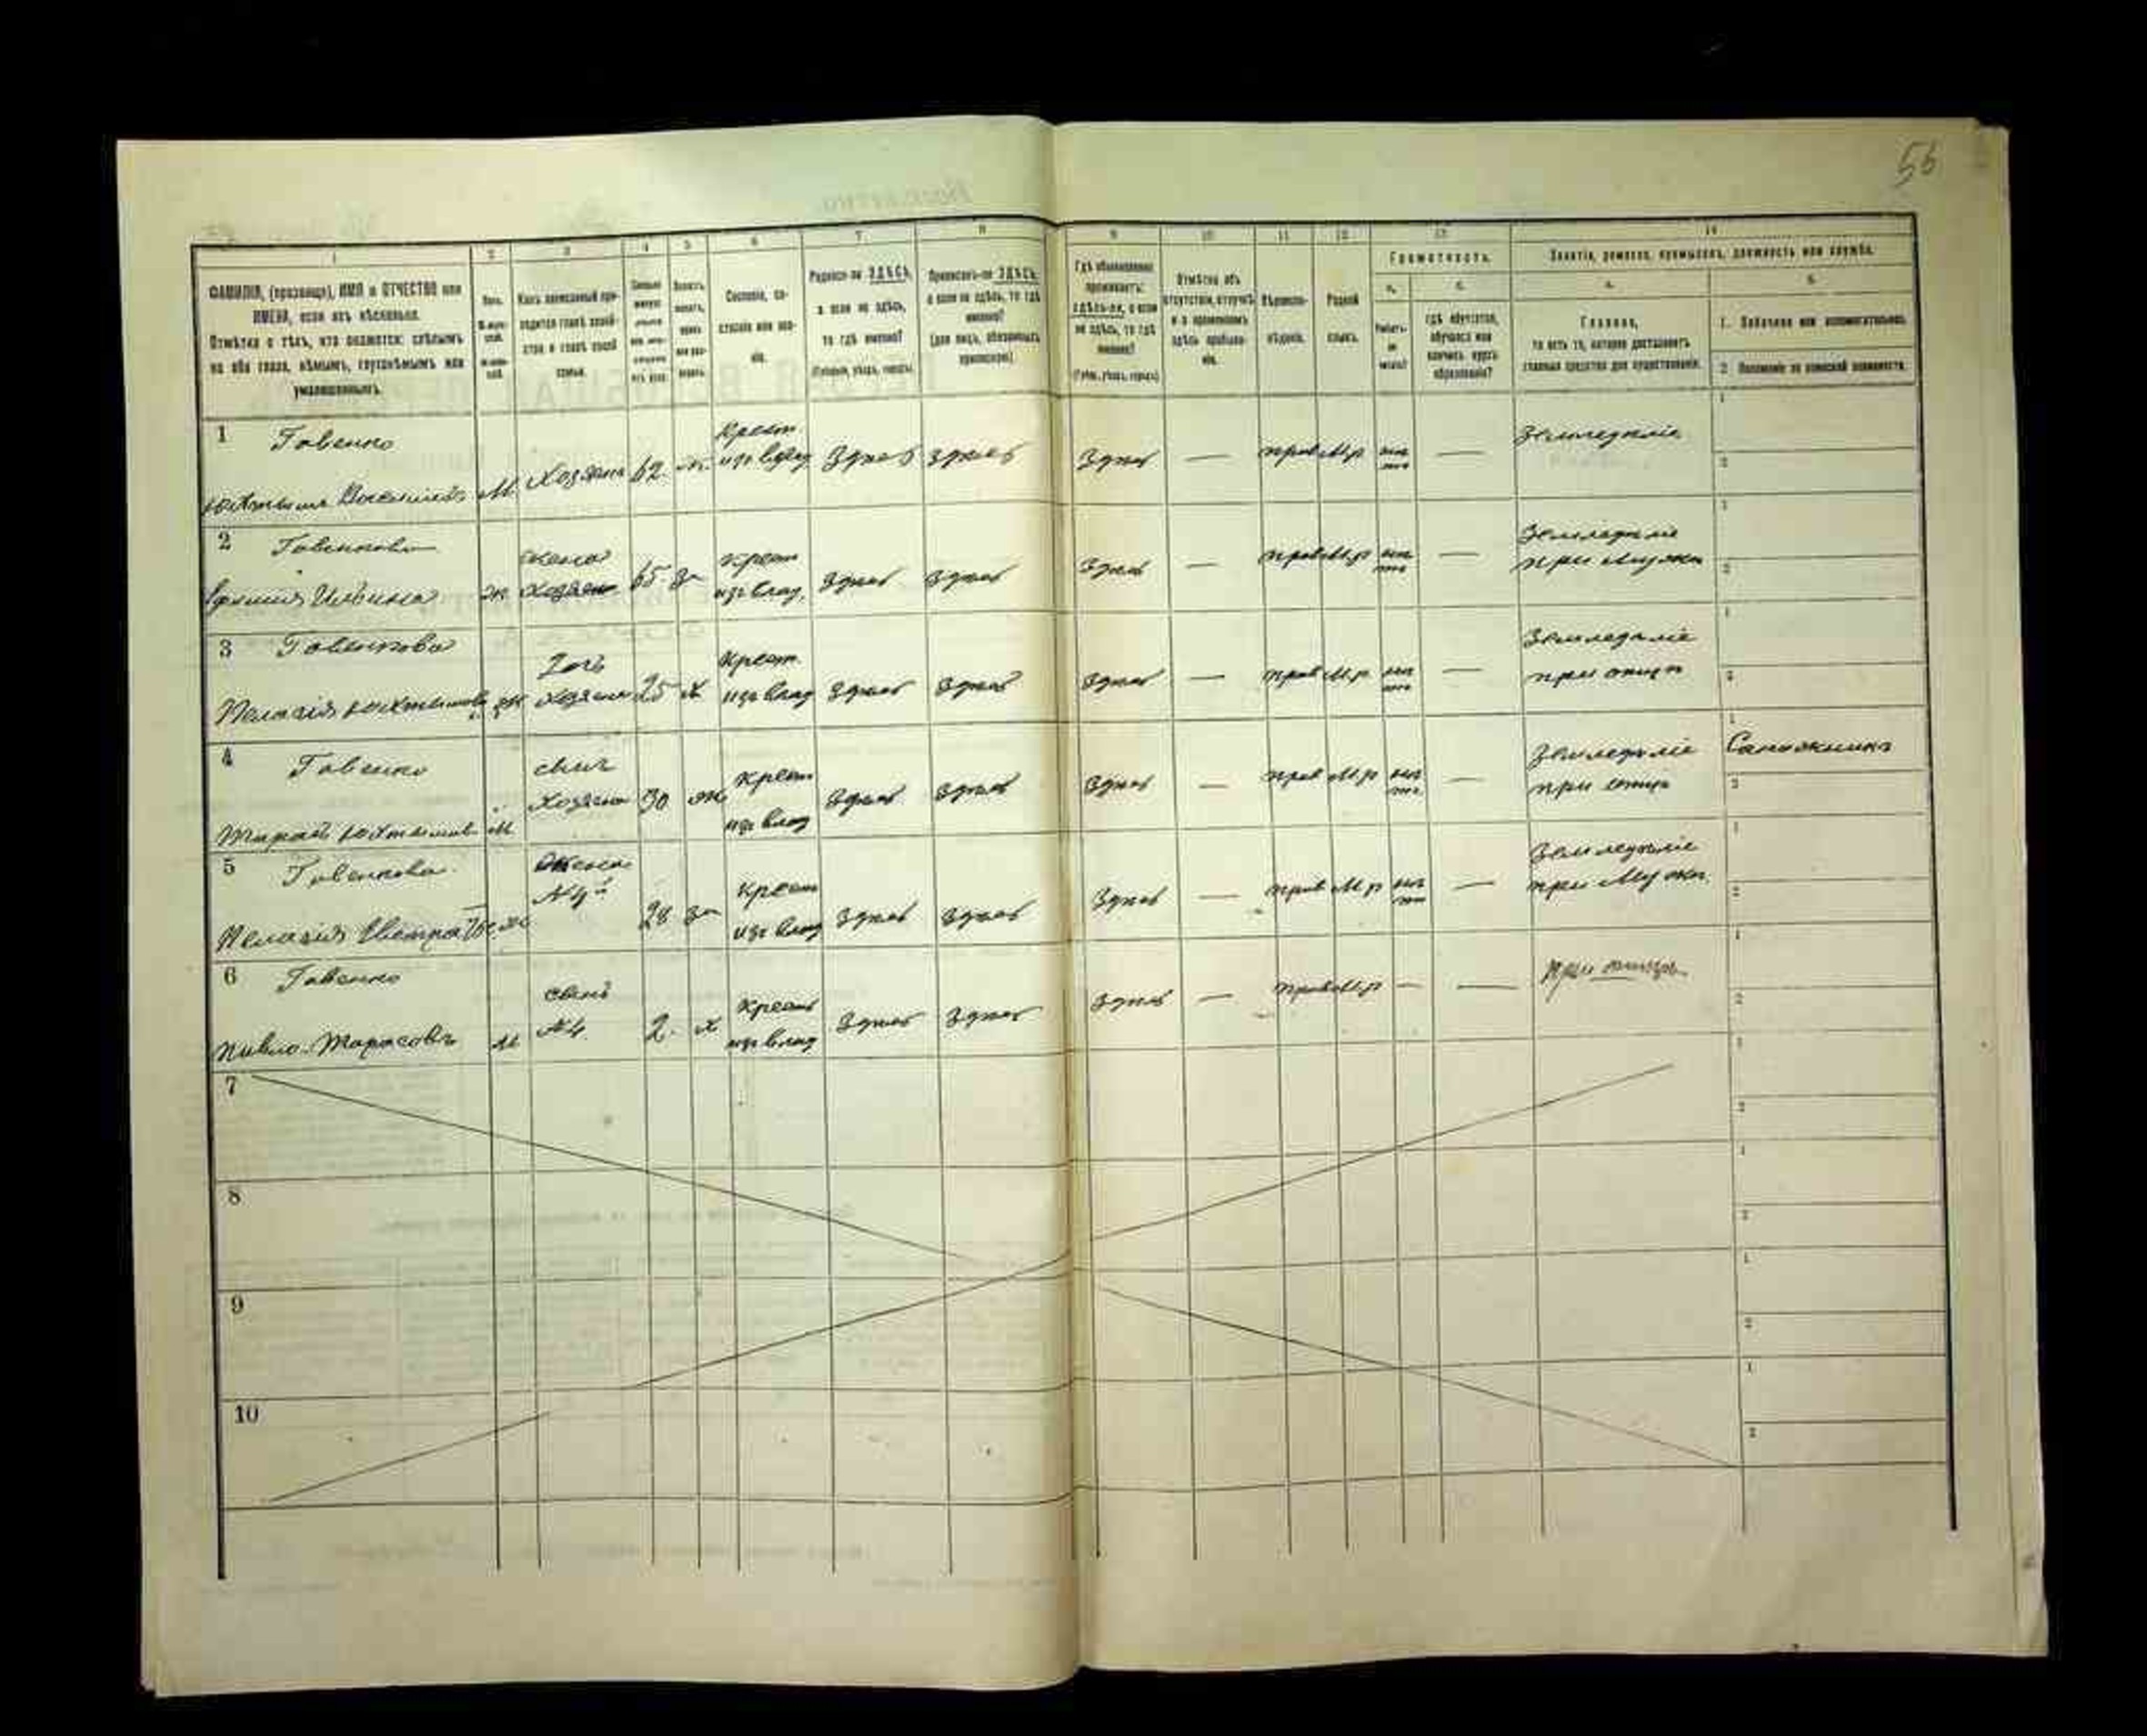 56
1 2 3 4 5 6 7 8 9 10 11 12 13 14
ФАМИЛІЯ, (прозвище), ИМЯ и ОТЧЕСТВО или
ИМЕНА, если ихъ нѣсколько.
Отмѣтка о тѣхъ, кто окажется: слѣпымъ
на оба глаза, нѣмымъ, глухонѣмымъ или
умалишеннымъ.
Полъ.
Какъ записанный при-
ходится главѣ хозяй-
ства и главѣ своей
семьи.
Сословіе, со-
стояніе или зва-
ніе.
Родился-ли ЗДѢСЬ,
а если не здѣсь,
то гдѣ именно?
(Губернія, уѣздъ, городъ)
Приписанъ-ли ЗДѢСЬ,
а если не здѣсь, то гдѣ
именно?
(для лицъ, обязанныхъ
припискою)
Гдѣ обыкновенно
проживаетъ:
здѣсь-ли, а если
не здѣсь, то гдѣ
именно?
(Губ., уѣздъ, городъ)
Отмѣтка объ
отсутствіи, отлучкѣ
и о временномъ
здѣсь пребыва-
ніи.
Вѣроиспо-
вѣданіе.
Родной
языкъ.
Грамотность.
а. б.
Умѣетъ-
ли
читать?
гдѣ обучается,
обучался или
кончилъ курсъ
образованія?
Занятіе, ремесло, промыселъ, должность или служба.
а. б.
Главное,
то есть то, которое доставляетъ
главныя средства для существованія.
1. Побочное или вспомогательное.
2. Положеніе по воинской повинности.
1 Говенко Крест.
М Хозяинъ 62 ж. изъ влад здѣсь здѣсь здѣсь — прав М.р нѣтъ — Земледѣліе
2 Говенкова жена Крест
Ильина ж хозяина 65 за изъ влад. здѣсь здѣсь здѣсь — прав М.р нѣтъ — Земледѣліе
при мужѣ
3 Говенкова Дочь Крест.
Пелагія ж хозяина 25 х изъ влад здѣсь здѣсь здѣсь — прав М.р нѣтъ — Земледѣліе
при отцѣ
4 Говенко сынъ Крест
Тарасъ М хозяина 30 ж изъ влад здѣсь здѣсь здѣсь — прав М.р нѣтъ — Земледѣліе
при отцѣ
Сапожникъ
5 Говенкова Жена Крест
Пелагія ж №4й 28 за изъ влад здѣсь здѣсь здѣсь — прав М.р нѣтъ — Земледѣліе
при мужѣ
6 Говенко сынъ Крест
Павло Тарасовъ М №4 2 х изъ влад здѣсь здѣсь здѣсь — прав М.р — — при отцѣ
7
8
9
10